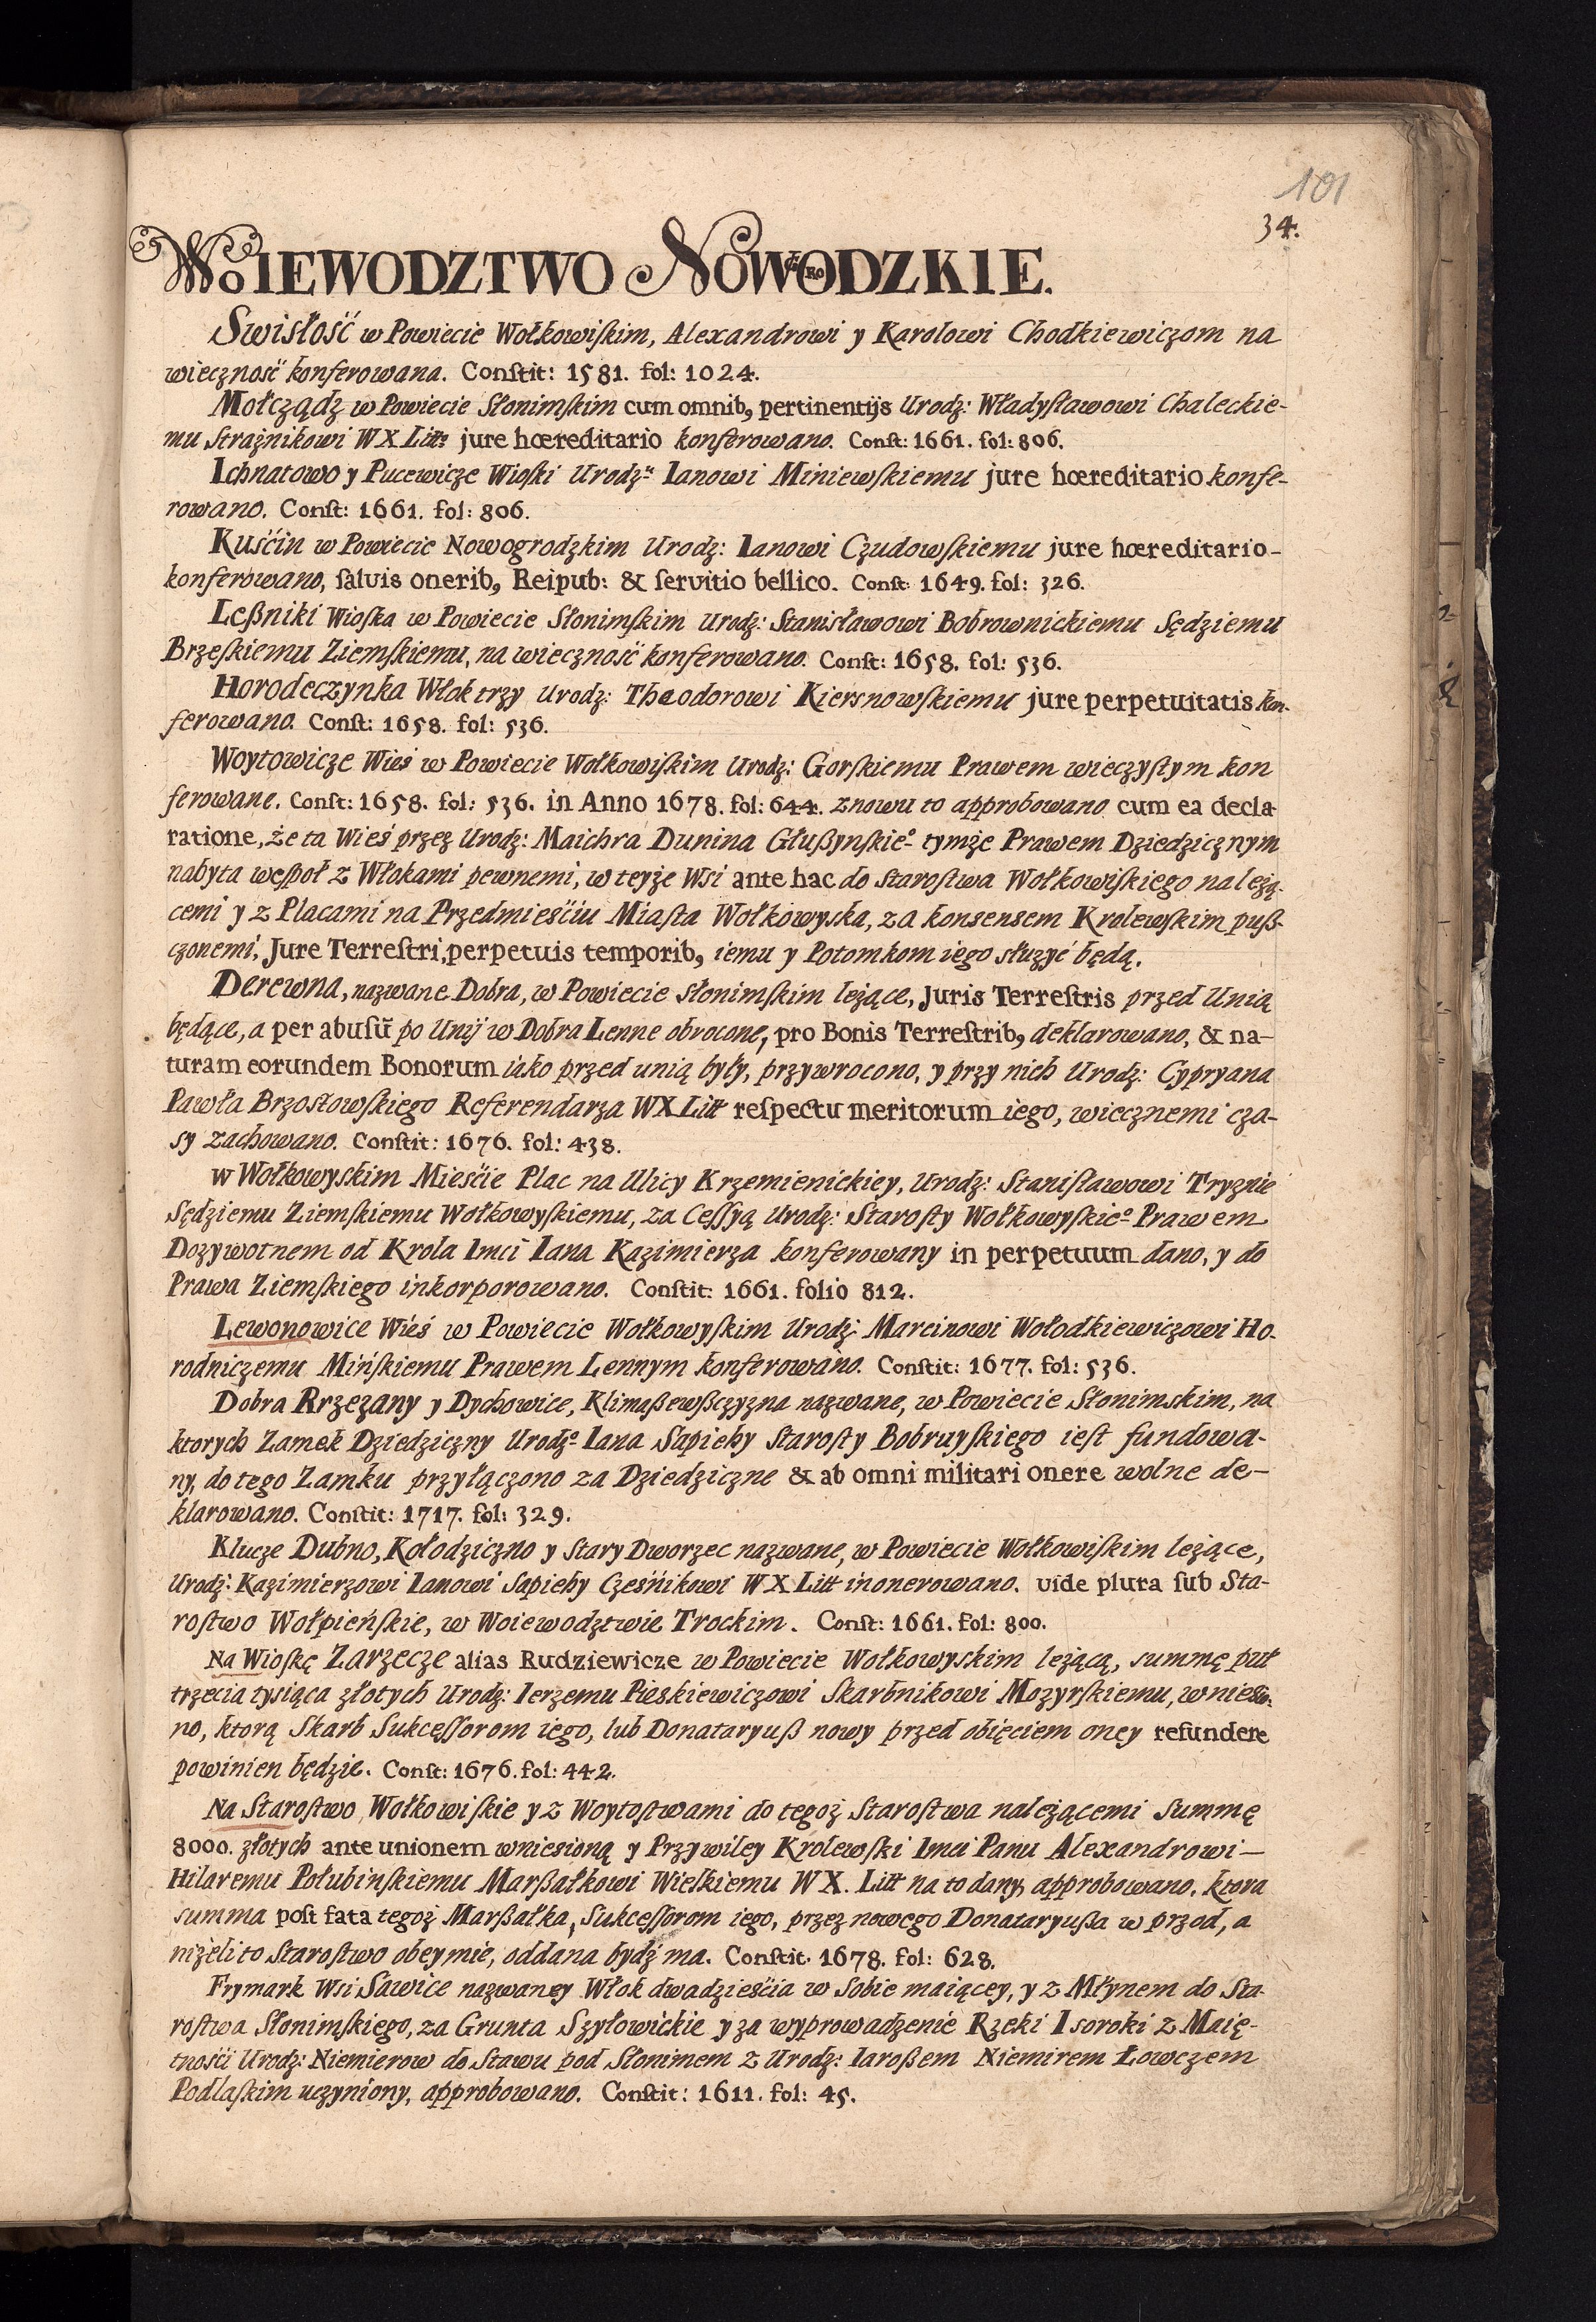 101
34.
WOIEWODZTWO NOWOGRODZKIE.
Swisłość w Powiecie Wołkowiſkim, Alexandrowi y Karolowi Chodkiewiczom na
wieczność konferowana. Conſtit: 1581. fol: 1024.
Mołcządz w Powiecie Słonimſkim cum omnib, pertinentijs Urodz: Władyſławowi Chaleckie-
mu Strażnikowi WX Litt: jure hœreditario konferowano. Conſt: 1661. fol: 806.
Ichnatowo y Pucewicze Wioſki Urodz: Ianowi Miniewſkiemu jure hœreditario konfe-
rowano. Conſt: 1661. fol: 806.
Kuśćin w Powiecie Nowogrodzkim Urodz: Ianowi Czudowſkiemu jure hœreditario-
konferowano, ſalvis onerib, Reipub: & ſervitio bellico. Conſt: 1649. fol: 326.
Leßniki Wioſka w Powiecie Słonimſkim Urodz: Stanisławowi Bobrownickiemu Sędziemu
Brzeſkiemu Ziemſkiemu, na wieczność konferowano. Conſt: 1658. fol: 536.
Horodeczynka Włok trzy Urodz: Theodorowi Kiersnowſkiemu jure perpetuitatis kon-
ferowano. Conſt: 1658. fol: 536.
Woytowicze Wieś w Powiecie Wołkowiſkim Urodz: Gorſkiemu Prawem wieczyſtym kon
ferowane. Conſt: 1658. fol: 536. in Anno 1678. fol: 644. znowu to approbowano cum ea decla-
ratione, że ta Wieś przez Urodz: Maichra Dunina Głußynskieº tymże Prawem Dziedzicznym
nabyta weſpoł z Włokami pewnemi, w teyże Wsi ante hac do Staroſtwa Wołkowiſkiego należą-
cemi y z Placami na Przedmieśćiu Miaſta Wołkowyska, za konsensem Krolewſkim puß-
czonemi, Jure Terreſtri, perpetuis temporib, iemu y Potomkom iego służyć będą.
Derewna, nazwane Dobra, w Powiecie Słonimſkim leżące, Juris Terreſtris przed Unią
będące, a per abuſu̅ po Unij w Dobra Lenne obrocone, pro Bonis Terreſtrib, deklarowano, & na-
turam eorundem Bonorum iako przed unią były, przywrocono, y przy nich Urodz: Cypryana
Pawła Brzoſtowſkiego Referendarza WX Litt reſpectu meritorum iego, wiecznemi cza-
sy zachowano. Conſtit: 1676. fol: 438.
w Wołkowyskim Mieśćie Plac na Ulicy Krzemienickiey, Urodz: Staniſławowi Tryznie
Sędziemu Ziemſkiemu Wołkowyſkiemu, za Ceſſyą Urodz: Staroſty Wołkowyſkieº Prawem
Dozywotnem od Krola Imci Iana Kazimierza konferowany in perpetuum dano, y do
Prawa Ziemſkiego inkorporowano. Conſtit: 1661. folio 812.
Lewonowice Wieś w Powiecie Wołkowyſkim Urodz: Marcinowi Wołodkiewiczowi Ho-
rodniczemu Mińſkiemu Prawem Lennym konferowano. Conſtit: 1677. fol: 536.
Dobra Rrzezany y Dychowice, Klimaßewßczyzna nazwane, w Powiecie Słonimskim, na
ktorych Zamek Dziedziczny Urodzº Iana Sapiehy Staroſty Bobruyſkiego ieſt fundowa-
ny, do tego Zamku przyłączono za Dziedziczne & ab omni militari onere wolne de-
klarowano. Conſtit: 1717. fol: 329.
Klucze Dubno, Kołodziczno y Stary Dworzec nazwane, w Powiecie Wołkowiſkim leżące,
Urodz: Kazimierzowi Ianowi Sapiehy Cześnikowi WX Litt inonerowano. vide plura ſub Sta-
roſtwo Wołpieńſkie, w Woiewodztwie Trockim. Conſt: 1661. fol: 800.
Na Wioſkę Zarzecze alias Rudziewicze w Powiecie Wołkowyskim leżącą, summę puł
trzecia tysiąca złotych Urodz: Ierzemu Pieskiewiczowi Skarbnikowi Mozyrſkiemu, wniesio-
no, ktorą Skarb Sukceſſorom iego, lub Donataryuß nowy przed obięciem oney refundere
powinien będzie. Conſt: 1676. fol: 442.
Na Staroſtwo Wołkowiſkie y z Woytoſtwami do tegoż Staroſtwa należącemi Summę
8000. złotych ante unionem wniesioną y Przywiley Krolewſki Imci Panu Alexandrowi-
Hilaremu Połubinſkiemu Marßałkowi Wielkiemu WX. Litt na to dany, approbowano. ktora
summa poſt fata tegoż Marßałka, Sukceſſorom iego, przez nowego Donataryußa w przod, a
niżeli to Staroſtwo obeymie, oddana bydź ma. Conſtit. 1678. fol: 628.
Frymark Wsi Sawice nazwaney Włok dwadzieśćia w Sobie maiącey, y z Młynem do Sta-
roſtwa Słonimſkiego, za Grunta Szyłowickie y za wyprowadzenie Rzeki Isoroki z Maię-
tnośći Urodz: Niemierow do Stawu pod Słonimem z Urodz: Iaroßem Niemirem Łowczem
Podlaſkim uczyniony, approbowano. Conſtit: 1611. fol: 45.